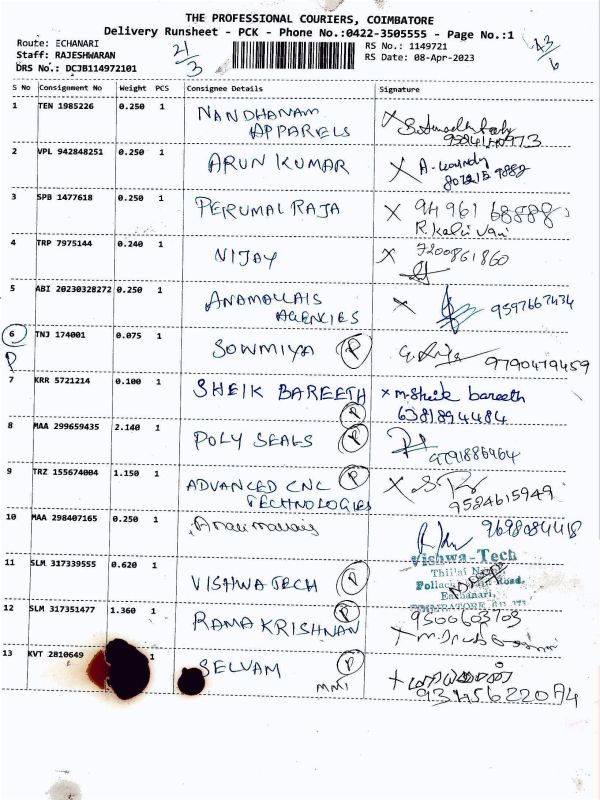 THE PROFESSIONAL COURIERS, COIMBATORE
Delivery Runsheet - PCK - Phone No.:0422-3505555 - Page No.:1
Route: ECHANARI
Staff: RAJESHWARAN
DRS No.: DCJB114972101
21/3
RS No.: 1149721
RS Date: 08-Apr-2023
43/6
S No Consignment No Weight PCS Consignee Details Signature
1 TEN 1985226 0.250 1 NANDHANAM APPARELS X
2 VPL 942848251 0.250 1 ARUN KUMAR X
3 SPB 1477618 0.250 1 PERUMAL RAJA X 94 961 68888
R. Kalai Vani
4 TRP 7975144 0.240 1 NIJAY X 7200861860
5 ABI 20230328272 0.250 1 ANAMALLAIS AGENCIES X 9597667434
6 TNJ 174001 0.075 1 SOWMIYA P 9790479459
P
7 KRR 5721214 0.100 1 SHEIK BAREETH P X m. Sheik bareeth
6381894484
8 MAA 299659435 2.140 1 POLY SEALS P 9791886964
9 TRZ 155674004 1.150 1 ADVANCED CNC TECHNOLOGIES P X
9584615949
10 MAA 298407165 0.250 1 Anamallais 9698084418
11 SLM 317339555 0.620 1 VISHWA TECH P
Vishwa-Tech
Thillai Nagar
Pollachi Main Road,
Eachanari,
COIMBATORE
12 SLM 317351477 1.360 1 RAMA KRISHNAN P 9500603703
X
13 KVT 2810649 1 SELVAM P X
MMI